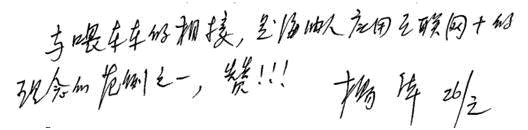 与喂车车的相接，是海油人应用互联网+的
理念的范例之一，赞!!! 杨华 26/2